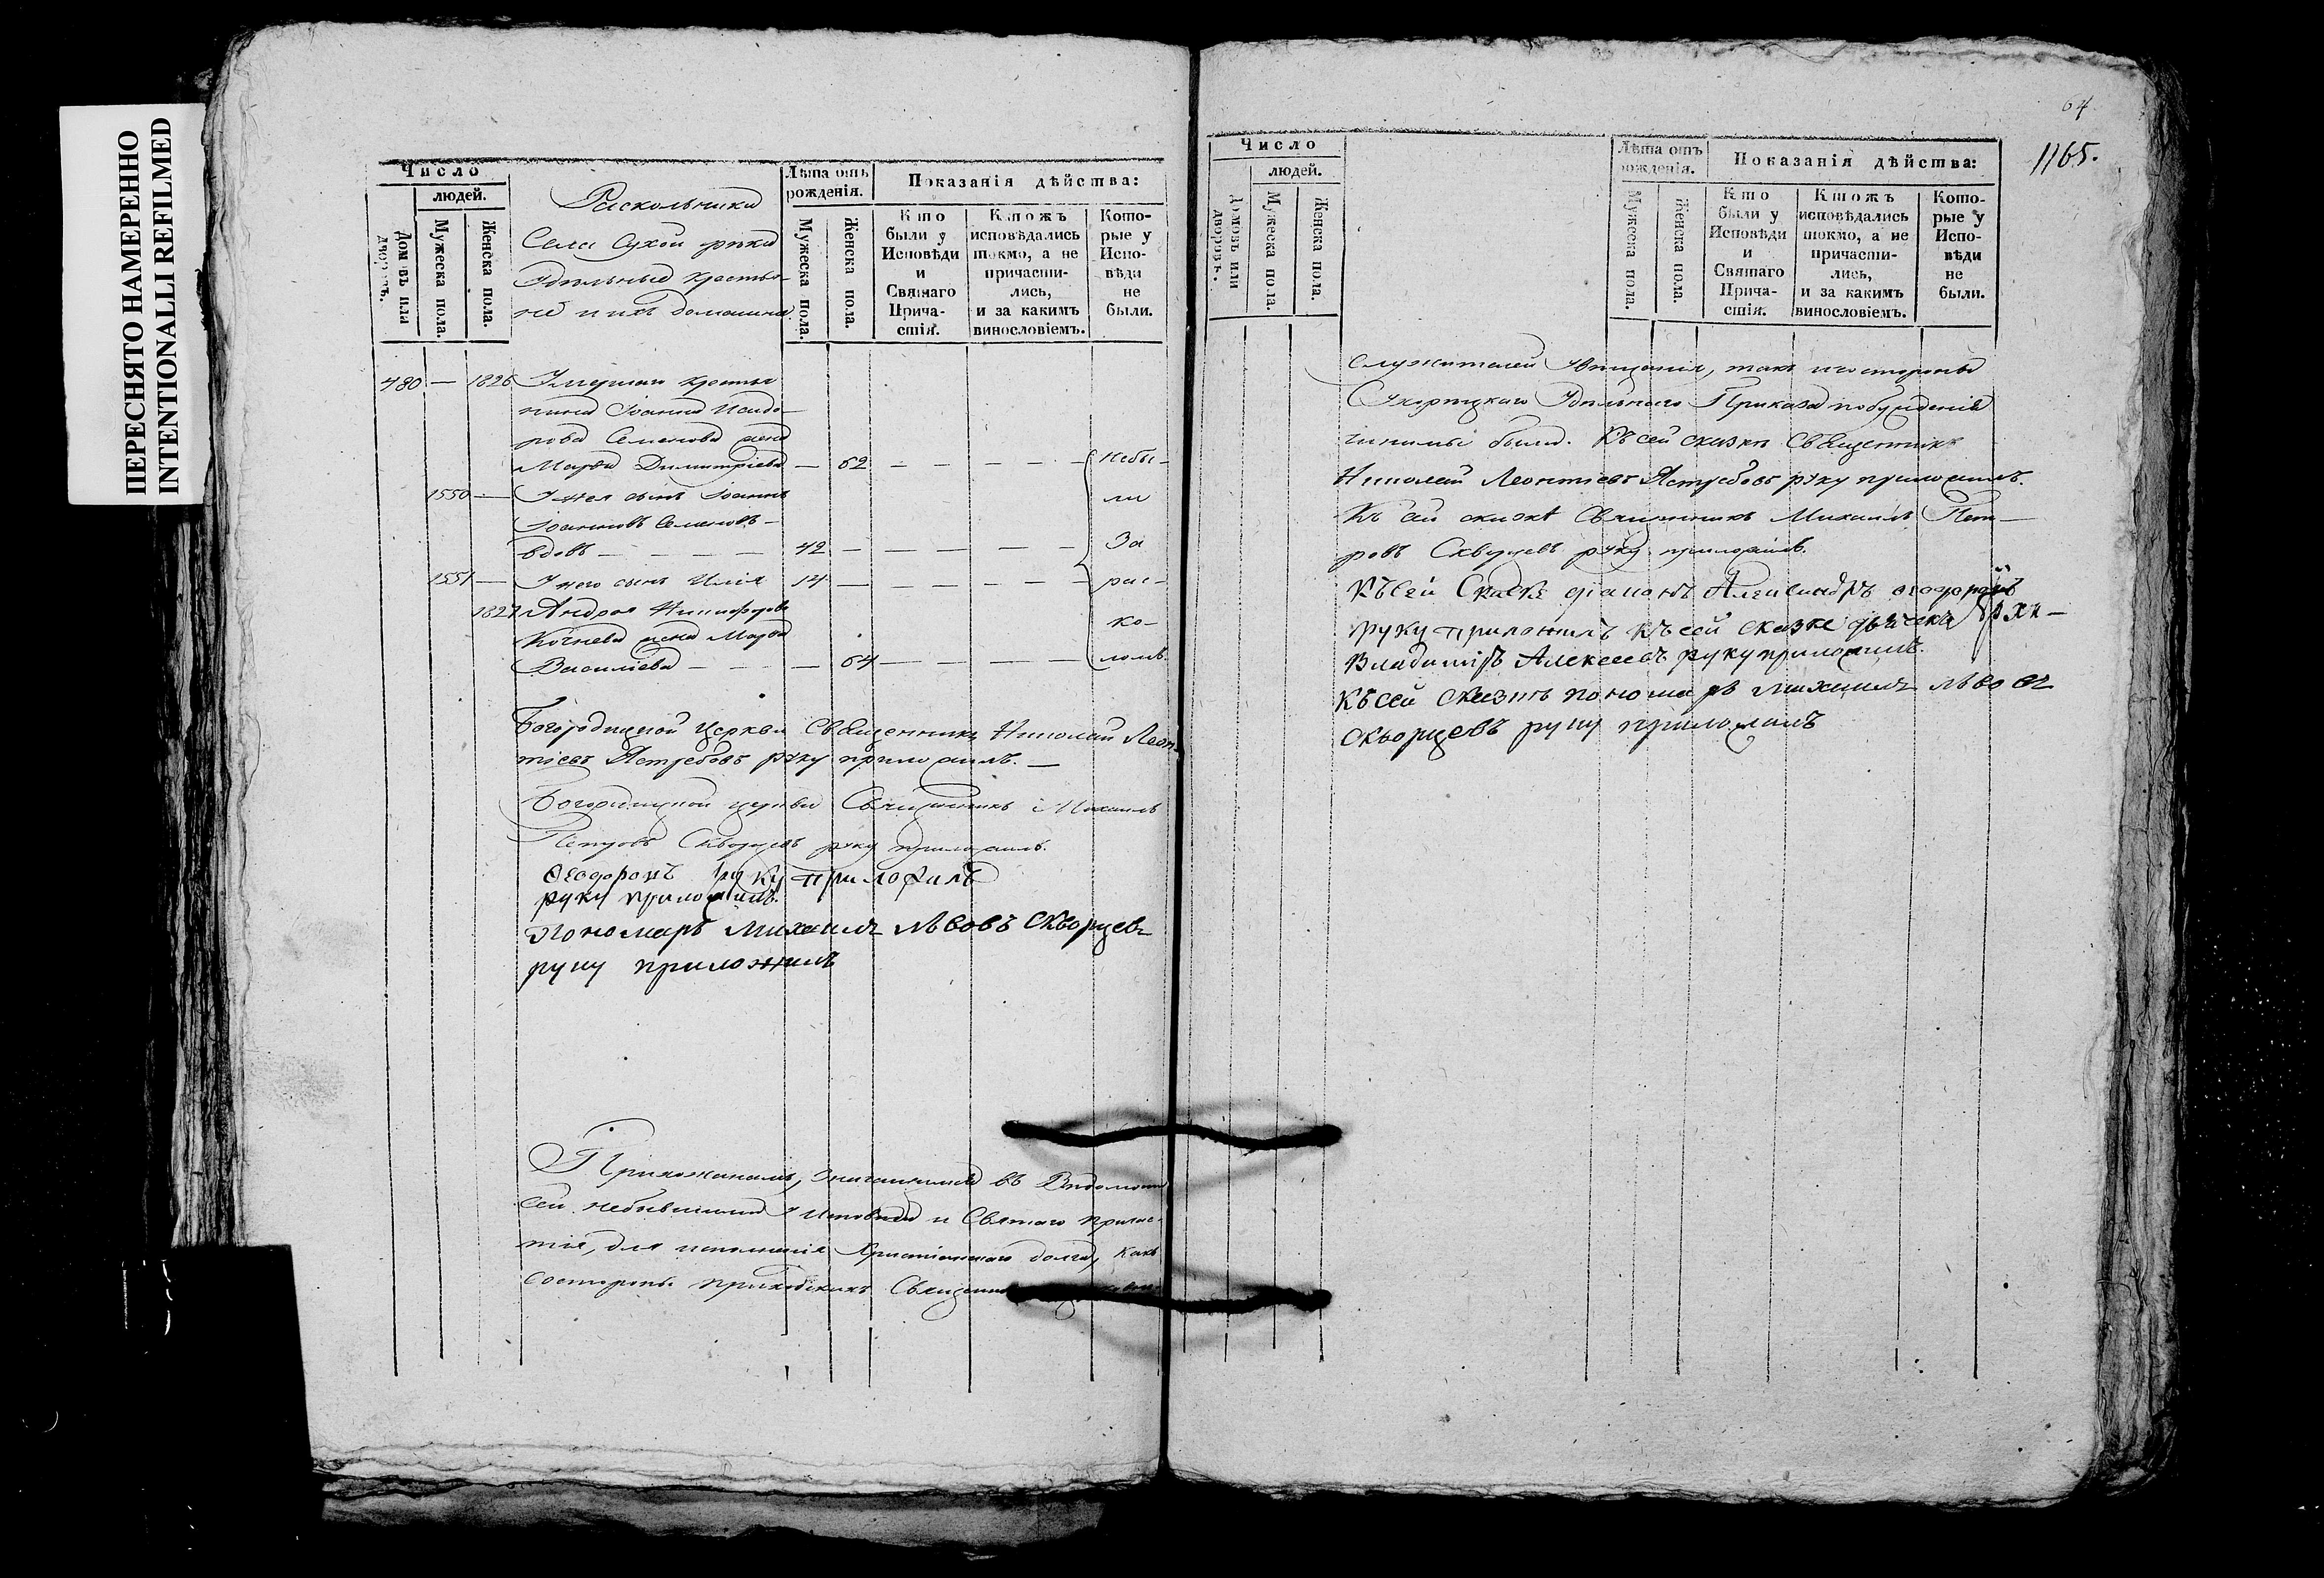 ПЕРЕСНЯТО НАМЕРЕННО
INTENTIONALLI REFILMED
Число
людей.
Домовъ или дворовъ.
Мужеска пола.
Женска пола.
Раскольники
Села Сухой рѣки
Удѣльные крестья-
не и ихъ домашніе
Лѣта отъ рожденія.
Мужеска пола.
Женска пола.
Показанія дѣйства:
Кто были у Исповѣди и Святаго Прича-стія.
Ктожъ исповѣдались токмо, а не причасти-лись, и за какимъ винословіемъ.
Кото-рые у Испо-вѣди не были.
480 — 1826 Умершаго крестья
нина Іоанна Исидо-
рова Семенова жена
Марѳа Димитріева — 62 — — — — — небы-
1550 — У нея сынъ Іоаннъ ли
Іоанновъ Семеновъ —
вдовъ — — — — 42 — — — — — За
1551 — У него сынъ Илія 14 — — — — — рас-
1827 Андрея Никифорова
Кочнева жена Марѳа ко-
Василіева — — — 64 — — — — — ломъ.
Богородицкой церкви Священникъ Николай Леон
тіевъ Ястребовъ руку приложилъ. —
Богородицкой церкви Священникъ Михаилъ
Петровъ Скворцевъ руку приложилъ.
Ѳеодоровъ руку приложилъ
руку приложилъ.
Пономарь Михаилъ Львовъ Скворцевъ
руку приложилъ
Прихожанамъ, значащимся въ Вѣдомости
сей небывшимъ у Исповѣди и Святаго причас-
тія, для исполненія Христіанскаго долга, какъ
состороны приходскихъ
64
1165.
Число
людей.
Домовъ или дворовъ.
Мужеска пола.
Женска пола.
Лѣта отъ рожденія.
Мужеска пола.
Женска пола.
Показанія дѣйства:
Кто были у Исповѣди и Святаго Прича-стія.
Ктожъ исповѣдались токмо, а не причасти-лись, и за какимъ винословіемъ.
Кото-рые у Испо-вѣди не были.
служителей увѣщанія, такъ и состороны
Удѣльнаго Приказа побужденія
чинимы были. Къ сей сказкѣ Священникъ
Николай Леонтіевъ Ястребовъ руку приложилъ.
Къ сей сказкѣ Священникъ Михаилъ Пет-
ровъ Скворцевъ руку приложилъ.
Къ сей Сказкѣ діаконъ Александръ Ѳеодоровъ
руку приложилъ къ сей сказке дьячекъ
Владимiръ Алексеевъ руку приложилъ.
Къ сей сказкѣ пономарь Михаилъ Львовъ
Скворцевъ руку приложилъ